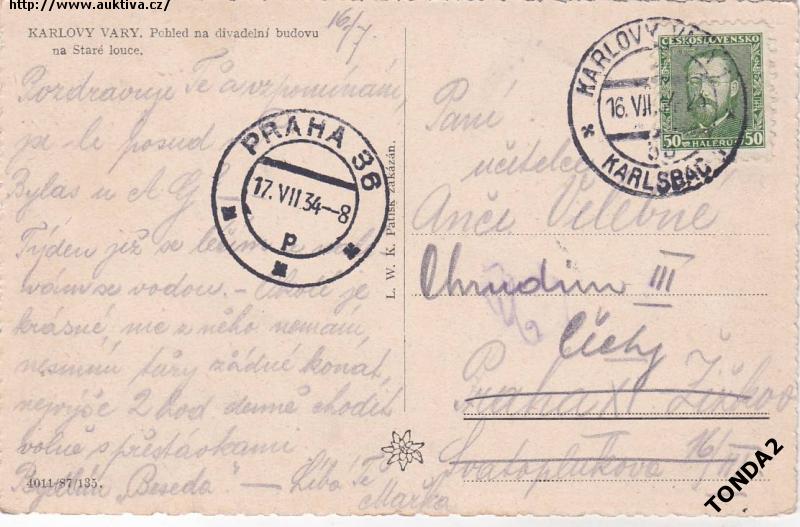 http://www.auktiva.cz/
KARLOVY VARY. Pohled na divadelní budovu
na Staré louce.
16/7
Pozdravuje Tě a vzpomíná,
jak posud
Bylas u
Týden již se léčíme
vodou. – Okolí je
krásné, nic z něho nemám,
nesmím túry žádné konat,
nejvýše 2 hod denně chodit
volně s přestávkami.
Bydlím „Beseda" – Líbá Tě
Mařka
4011/87/135.
PRAHA 36
17. VII 34–8
P
L. W. K. Patisk zakázán.
KARLOVY VARY
16. VII. 34
KARLSBAD
ČESKOSLOVENSKO
50 HALÉŘŮ 50
Paní
učitelce
Anči Velebné
Chrudim III
Čichy
Praha X Žižkov
Svatoplukova 16/III
TONDA2